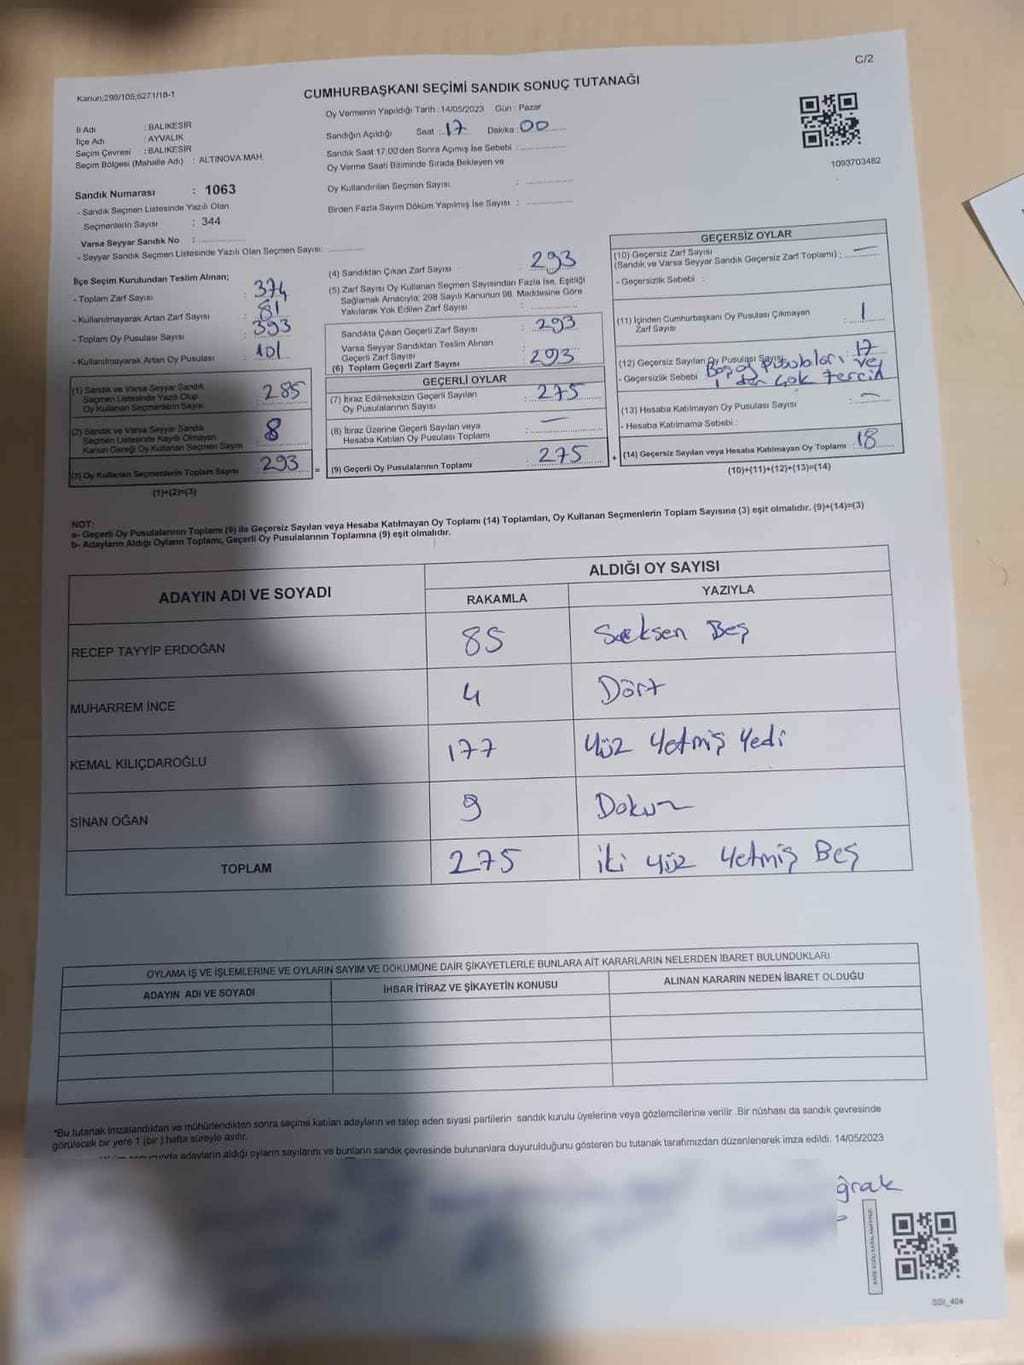 C/2
Kanun;298/105;6271/18-1
CUMHURBAŞKANI SEÇİMİ SANDIK SONUÇ TUTANAĞI
Oy Vermenin Yapıldığı Tarih : 14/05/2023 Gün : Pazar
İl Adı : BALIKESİR
İlçe Adı : AYVALIK
Seçim Çevresi : BALIKESİR
Seçim Bölgesi (Mahalle Adı) : ALTINOVA MAH.
Sandığın Açıldığı Saat : 17 Dakika : 00
Sandık Saat 17:00'den Sonra Açılmış İse Sebebi :
Oy Verme Saati Bitiminde Sırada Bekleyen ve
Oy Kullandırılan Seçmen Sayısı :
Birden Fazla Sayım Döküm Yapılmış İse Sayısı :
1093703482
Sandık Numarası : 1063
- Sandık Seçmen Listesinde Yazılı Olan
Seçmenlerin Sayısı : 344
Varsa Seyyar Sandık No :
- Seyyar Sandık Seçmen Listesinde Yazılı Olan Seçmen Sayısı:
İlçe Seçim Kurulundan Teslim Alınan;
- Toplam Zarf Sayısı : 374
- Kullanılmayarak Artan Zarf Sayısı : 81
- Toplam Oy Pusulası Sayısı : 393
- Kullanılmayarak Artan Oy Pusulası : 101
(1) Sandık ve Varsa Seyyar Sandık
Seçmen Listesinde Yazılı Olup
Oy Kullanan Seçmenlerin Sayısı : 285
(2) Sandık ve Varsa Seyyar Sandık
Seçmen Listesinde Kayıtlı Olmayan
Kanun Gereği Oy Kullanan Seçmen Sayısı : 8
(3) Oy Kullanan Seçmenlerin Toplam Sayısı : 293
(1)+(2)=(3)
(4) Sandıktan Çıkan Zarf Sayısı : 293
(5) Zarf Sayısı Oy Kullanan Seçmen Sayısından Fazla İse, Eşitliği
Sağlamak Amacıyla; 298 Sayılı Kanunun 98. Maddesine Göre
Yakılarak Yok Edilen Zarf Sayısı :
Sandıkta Çıkan Geçerli Zarf Sayısı : 293
Varsa Seyyar Sandıktan Teslim Alınan
Geçerli Zarf Sayısı :
(6) Toplam Geçerli Zarf Sayısı : 293
GEÇERLİ OYLAR
(7) İtiraz Edilmeksizin Geçerli Sayılan
Oy Pusulalarının Sayısı : 275
(8) İtiraz Üzerine Geçerli Sayılan veya
Hesaba Katılan Oy Pusulası Toplamı : —
(9) Geçerli Oy Pusulalarının Toplamı : 275
GEÇERSİZ OYLAR
(10) Geçersiz Zarf Sayısı
(Sandık ve Varsa Seyyar Sandık Geçersiz Zarf Toplamı) : —
- Geçersizlik Sebebi :
(11) İçinden Cumhurbaşkanı Oy Pusulası Çıkmayan
Zarf Sayısı : 1
(12) Geçersiz Sayılan Oy Pusulası Sayısı : 17
- Geçersizlik Sebebi : Boş oy pusulaları ve
1 den çok tercih
(13) Hesaba Katılmayan Oy Pusulası Sayısı : —
- Hesaba Katılmama Sebebi :
(14) Geçersiz Sayılan veya Hesaba Katılmayan Oy Toplamı : 18
(10)+(11)+(12)+(13)=(14)
NOT:
a- Geçerli Oy Pusulalarının Toplamı (9) ile Geçersiz Sayılan veya Hesaba Katılmayan Oy Toplamı (14) Toplamları, Oy Kullanan Seçmenlerin Toplam Sayısına (3) eşit olmalıdır. (9)+(14)=(3)
b- Adayların Aldığı Oyların Toplamı, Geçerli Oy Pusulalarının Toplamına (9) eşit olmalıdır.
ADAYIN ADI VE SOYADI ALDIĞI OY SAYISI
RAKAMLA YAZIYLA
RECEP TAYYİP ERDOĞAN 85 Seeksen Beş
MUHARREM İNCE 4 Dört
KEMAL KILIÇDAROĞLU 177 Yüz Yetmiş Yedi
SİNAN OĞAN 9 Dokuz
TOPLAM 275 İki yüz Yetmiş Beş
OYLAMA İŞ VE İŞLEMLERİNE VE OYLARIN SAYIM VE DÖKÜMÜNE DAİR ŞİKAYETLERLE BUNLARA AİT KARARLARIN NELERDEN İBARET BULUNDUKLARI
ADAYIN ADI VE SOYADI İHBAR İTİRAZ VE ŞİKAYETİN KONUSU ALINAN KARARIN NEDEN İBARET OLDUĞU
*Bu tutanak imzalandıktan ve mühürlendikten sonra seçime katılan adayların ve talep eden siyasi partilerin sandık kurulu üyelerine veya gözlemcilerine verilir .Bir nüshası da sandık çevresinde
görülecek bir yere 1 (bir ) hafta süreyle asılır.
adayların aldığı oyların sayılarını ve bunların sandık çevresinde bulunanlara duyurulduğunu gösteren bu tutanak tarafımızdan düzenlenerek imza edildi. 14/05/2023
ğrak
SSI_404